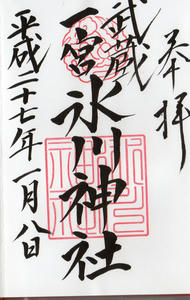 奉拝
武蔵
一宮
氷川神社
平成二十七年一月八日